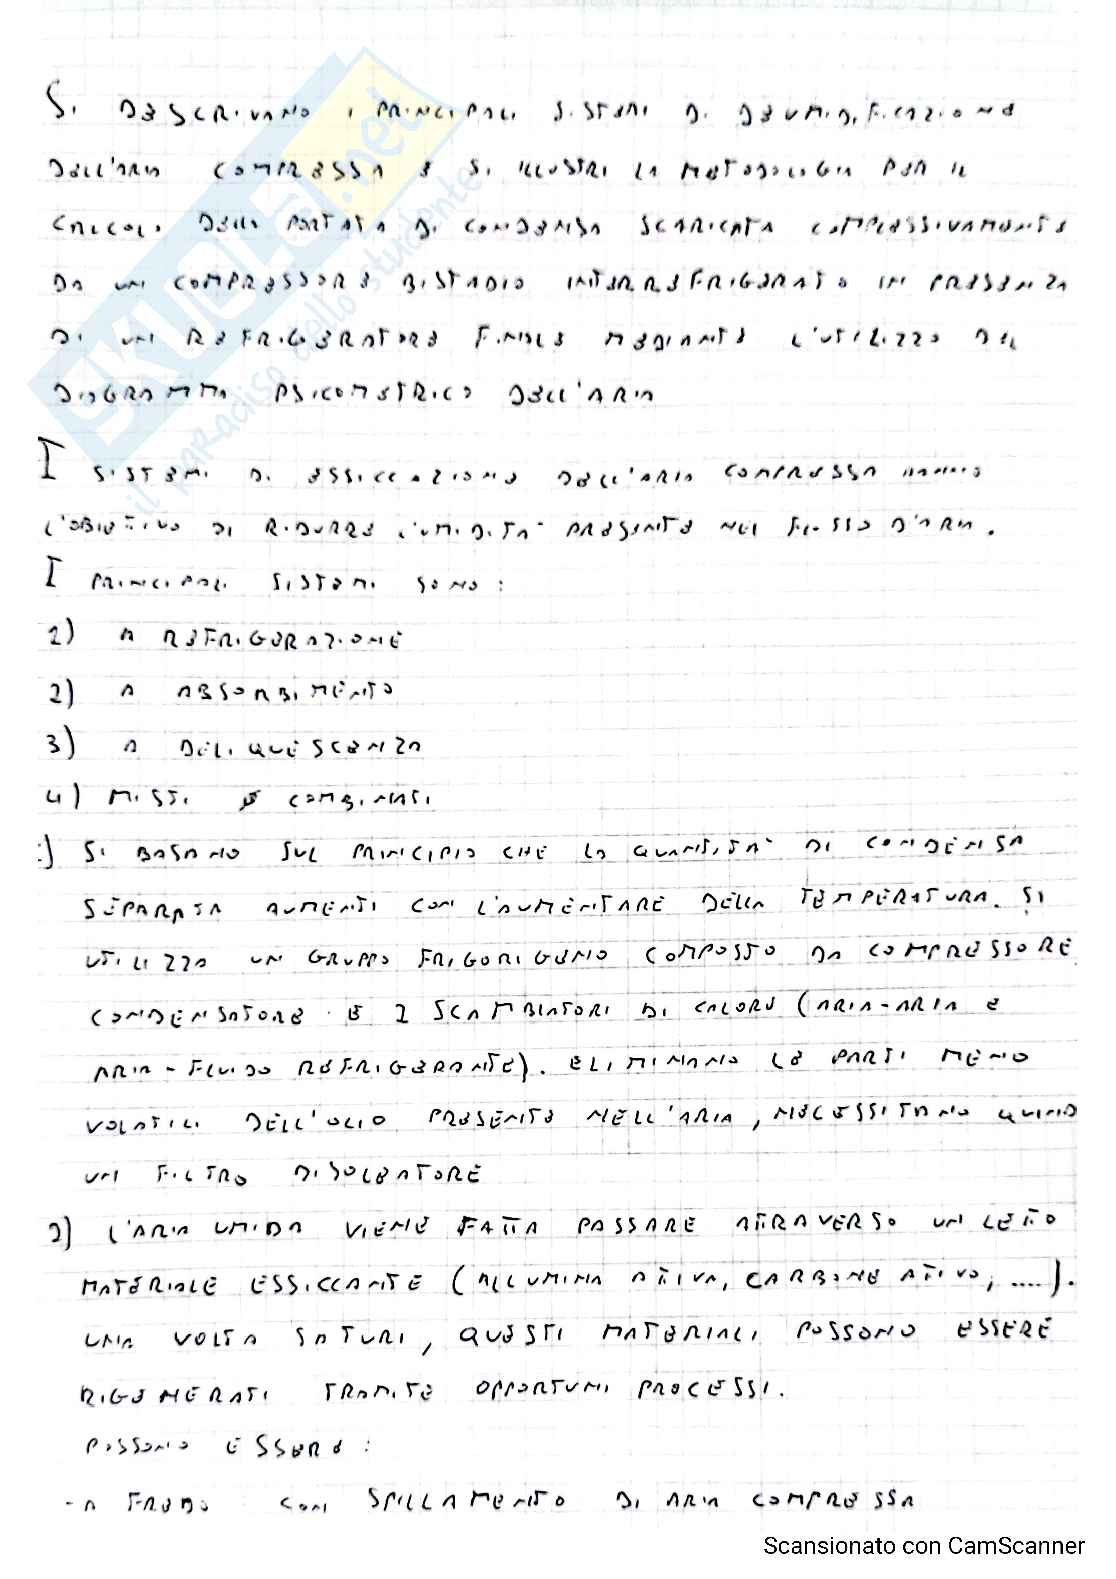 SI DESCRIVANO I PRINCIPALI SISTEMI DI DEUMIDIFICAZIONE
DELL'ARIA COMPRESSA E SI ILLUSTRI LA METODOLOGIA PER IL
CALCOLO DELLA PORTATA DI CONDENSA SCARICATA COMPLESSIVAMENTE
DA UN COMPRESSORE BISTADIO INTERREFRIGERATO IN PRESENZA
DI UN REFRIGERATORE FINALE MEDIANTE L'UTILIZZO DEL
DIAGRAMMA PSICOMETRICO DELL'ARIA
I SISTEMI DI ESSICCAZIONE DELL'ARIA COMPRESSA HANNO
L'OBIETTIVO DI RIDURRE L'UMIDITA' PRESENTE NEL FLUSSO D'ARIA.
I PRINCIPALI SISTEMI SONO:
1) A REFRIGERAZIONE
2) A ABSORBIMENTO
3) A DELIQUESCENZA
4) MISTI O COMBINATI
1) SI BASANO SUL PRINCIPIO CHE LA QUANTITA' DI CONDENSA
SEPARATA AUMENTI CON L'AUMENTARE DELLA TEMPERATURA. SI
UTILIZZA UN GRUPPO FRIGORIGENO COMPOSTO DA COMPRESSORE
CONDENSATORE E 2 SCAMBIATORI DI CALORE (ARIA-ARIA E
ARIA-FLUIDO REFRIGERANTE). ELIMINANO LE PARTI MENO
VOLATILI DELL'OLIO PRESENTE NELL'ARIA, NECESSITANO QUINDI
UN FILTRO DISOLEATORE
2) L'ARIA UMIDA VIENE FATTA PASSARE ATTRAVERSO UN LETTO
MATERIALE ESSICCANTE (ALLUMINA ATTIVA, CARBONE ATTIVO, ....).
UNA VOLTA SATURI, QUESTI MATERIALI POSSONO ESSERE
RIGENERATI TRAMITE OPPORTUNI PROCESSI.
POSSONO ESSERE:
- A FREDDO CON SPILLAMENTO DI ARIA COMPRESSA
SKUOLA.net
il paradiso dello studente
Scansionato con CamScanner